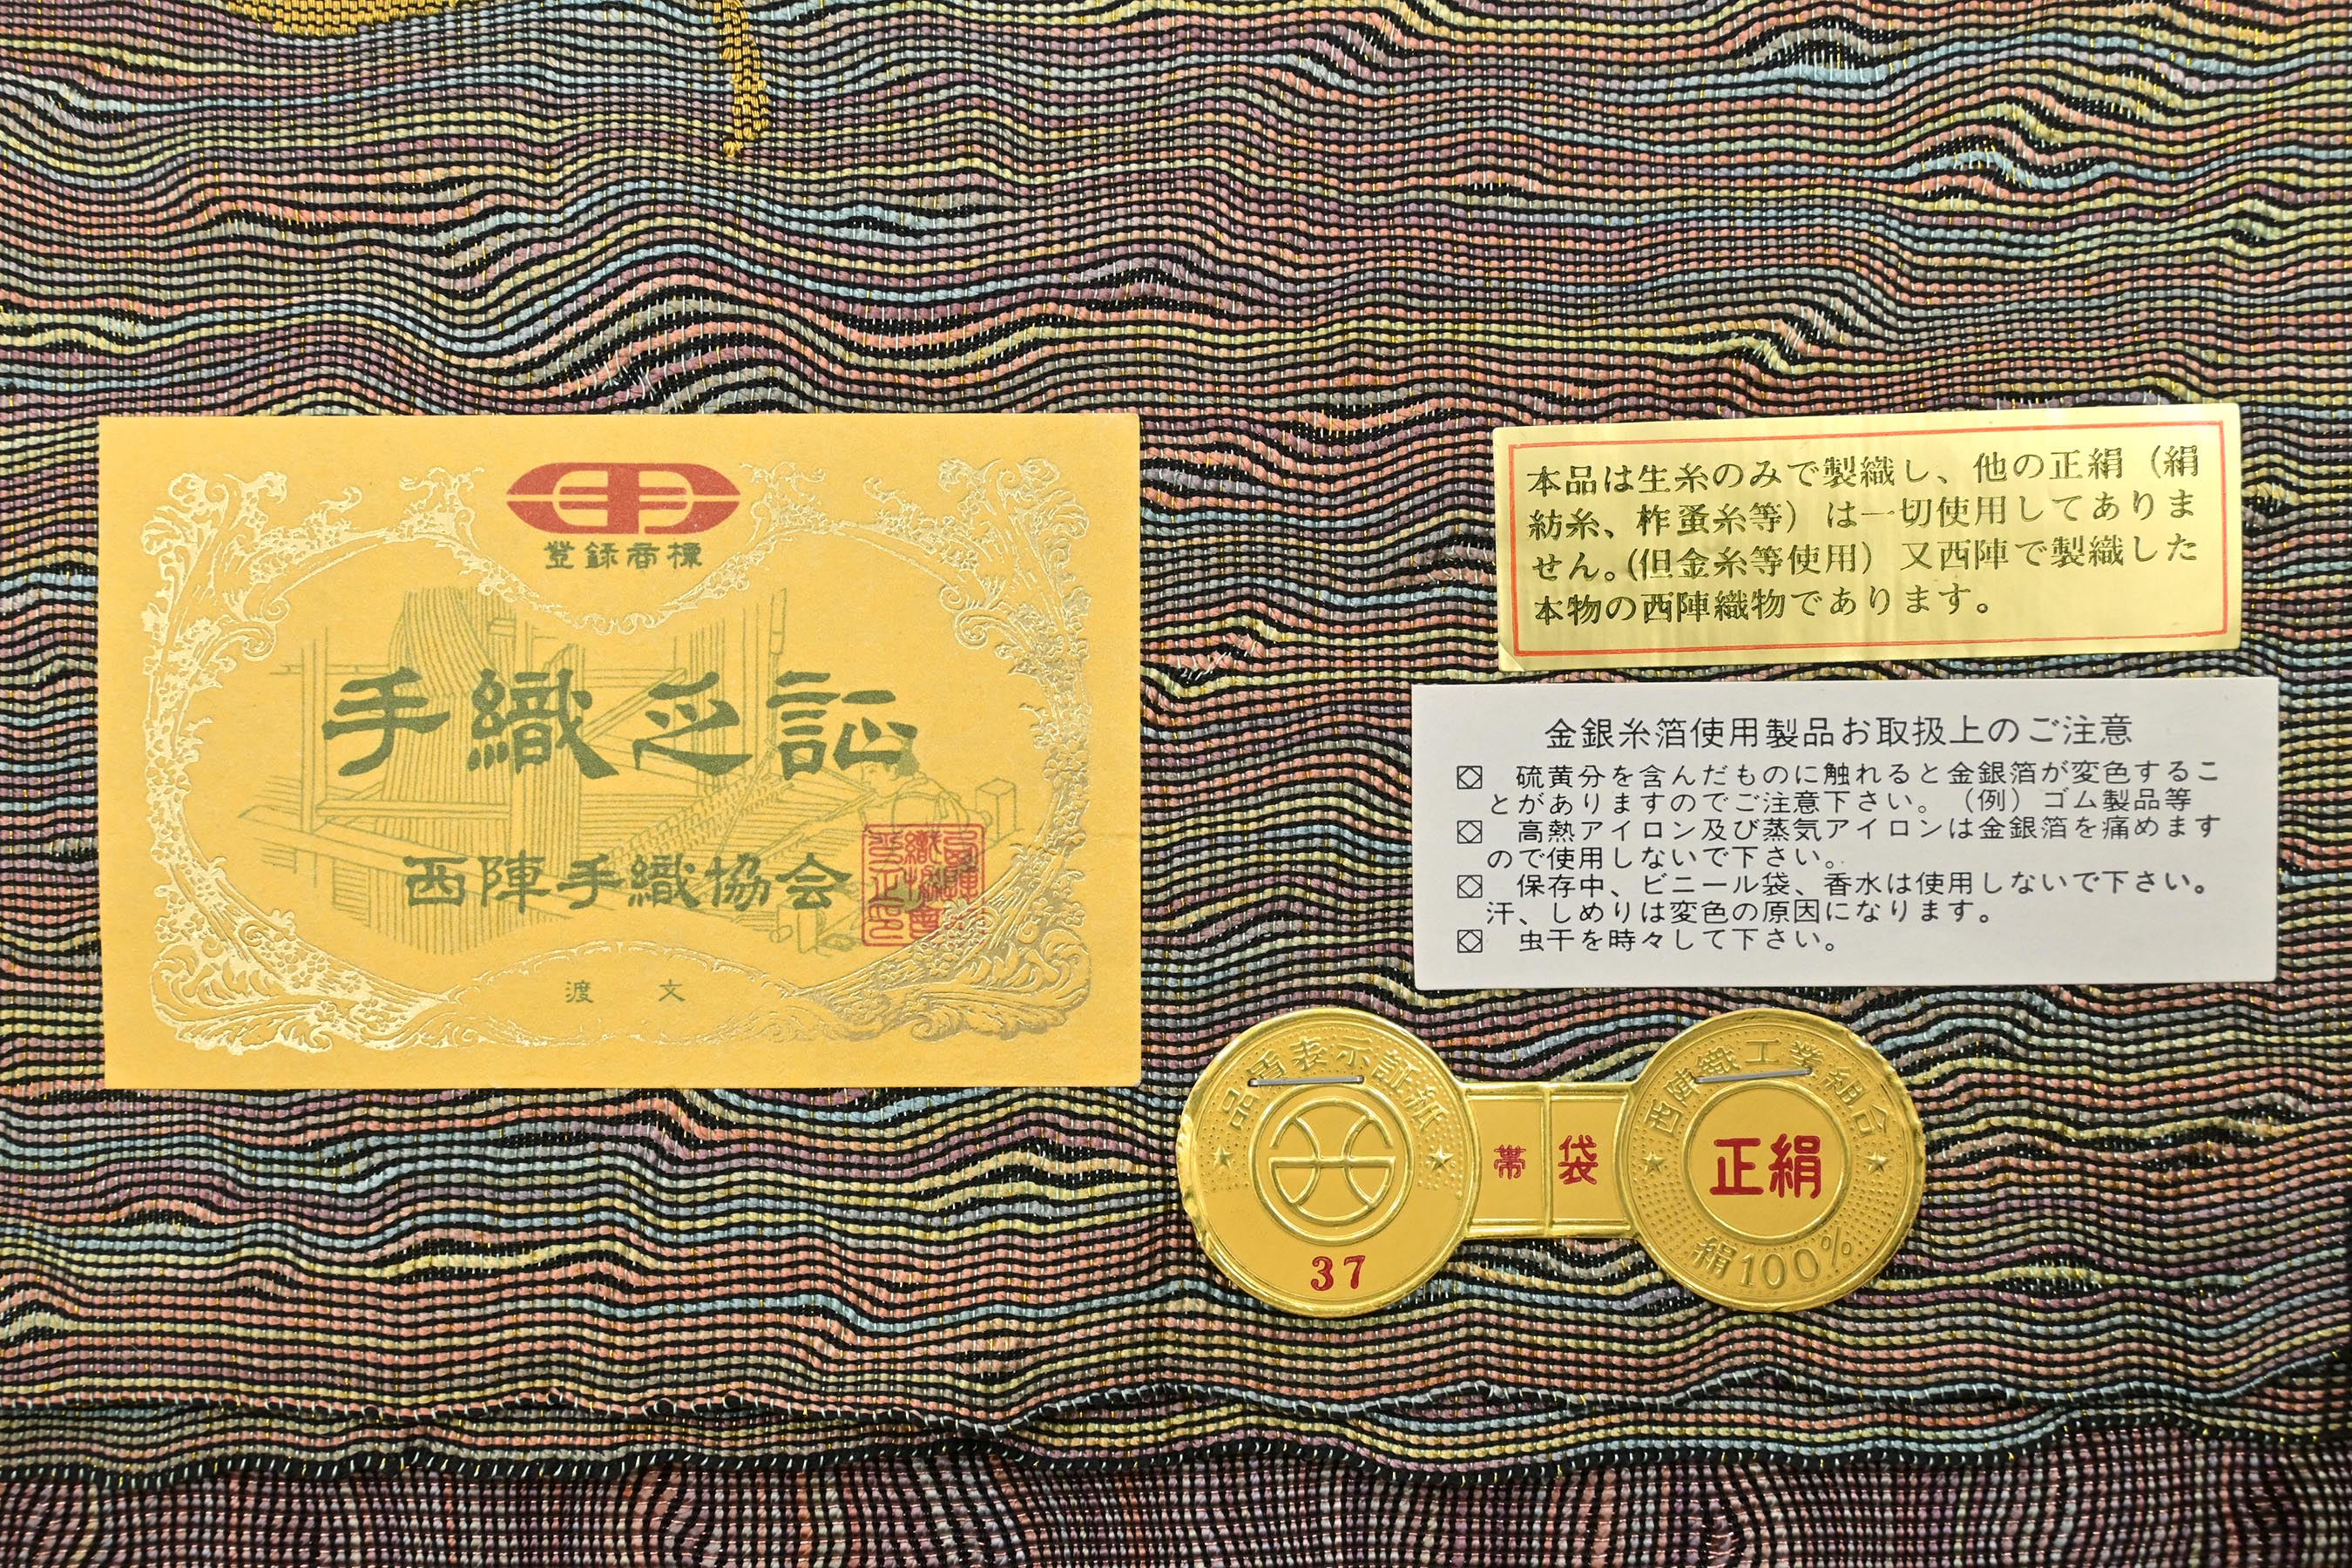 登録商標
手織之証
西陣手織協会
渡 文
本品は生糸のみで製織し、他の正絹（絹
紡糸、柞蚕糸等）は一切使用してありま
せん。(但金糸等使用）又西陣で製織した
本物の西陣織物であります。
金銀糸箔使用製品お取扱上のご注意
硫黄分を含んだものに触れると金銀箔が変色するこ
とがありますのでご注意下さい。（例）ゴム製品等
高熱アイロン及び蒸気アイロンは金銀箔を痛めます
ので使用しないで下さい。
保存中、ビニール袋、香水は使用しないで下さい。
汗、しめりは変色の原因になります。
虫干を時々して下さい。
品質表示証紙
37
帯 袋
西陣織工業組合
正絹
絹100%